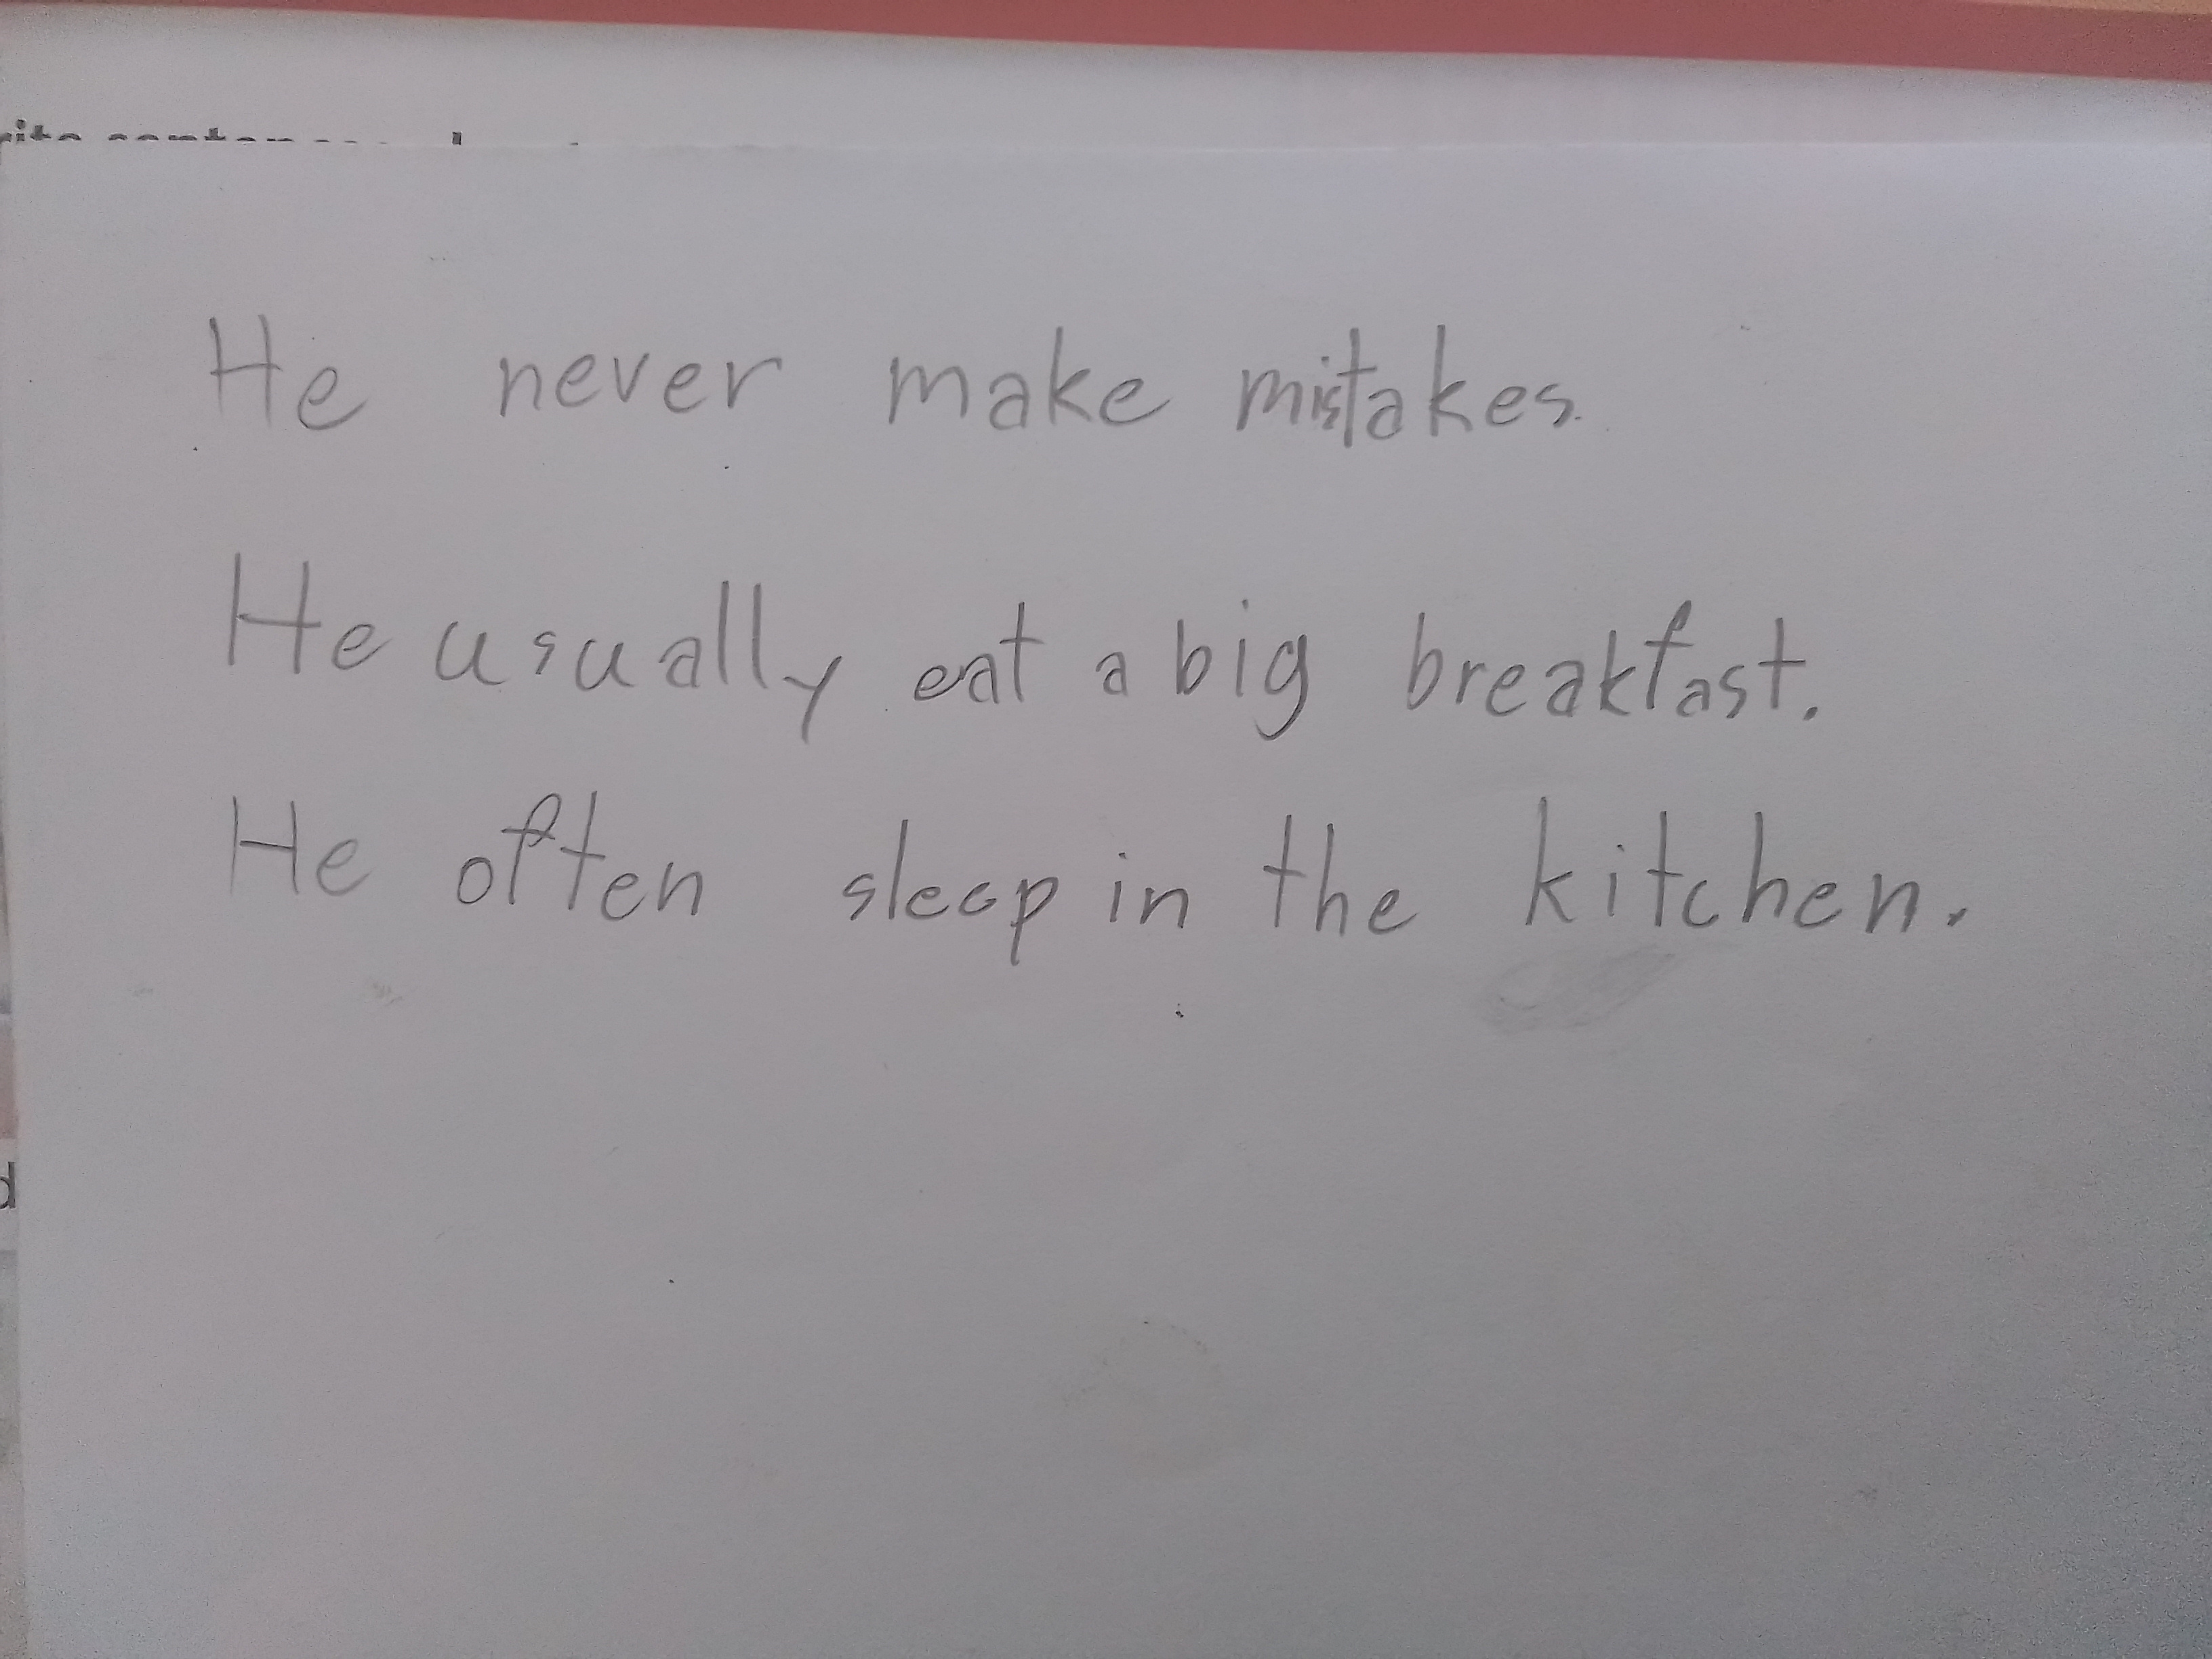 He never make mistakes.
He usually eat a big breakfast.
He often sleep in the kitchen.
d